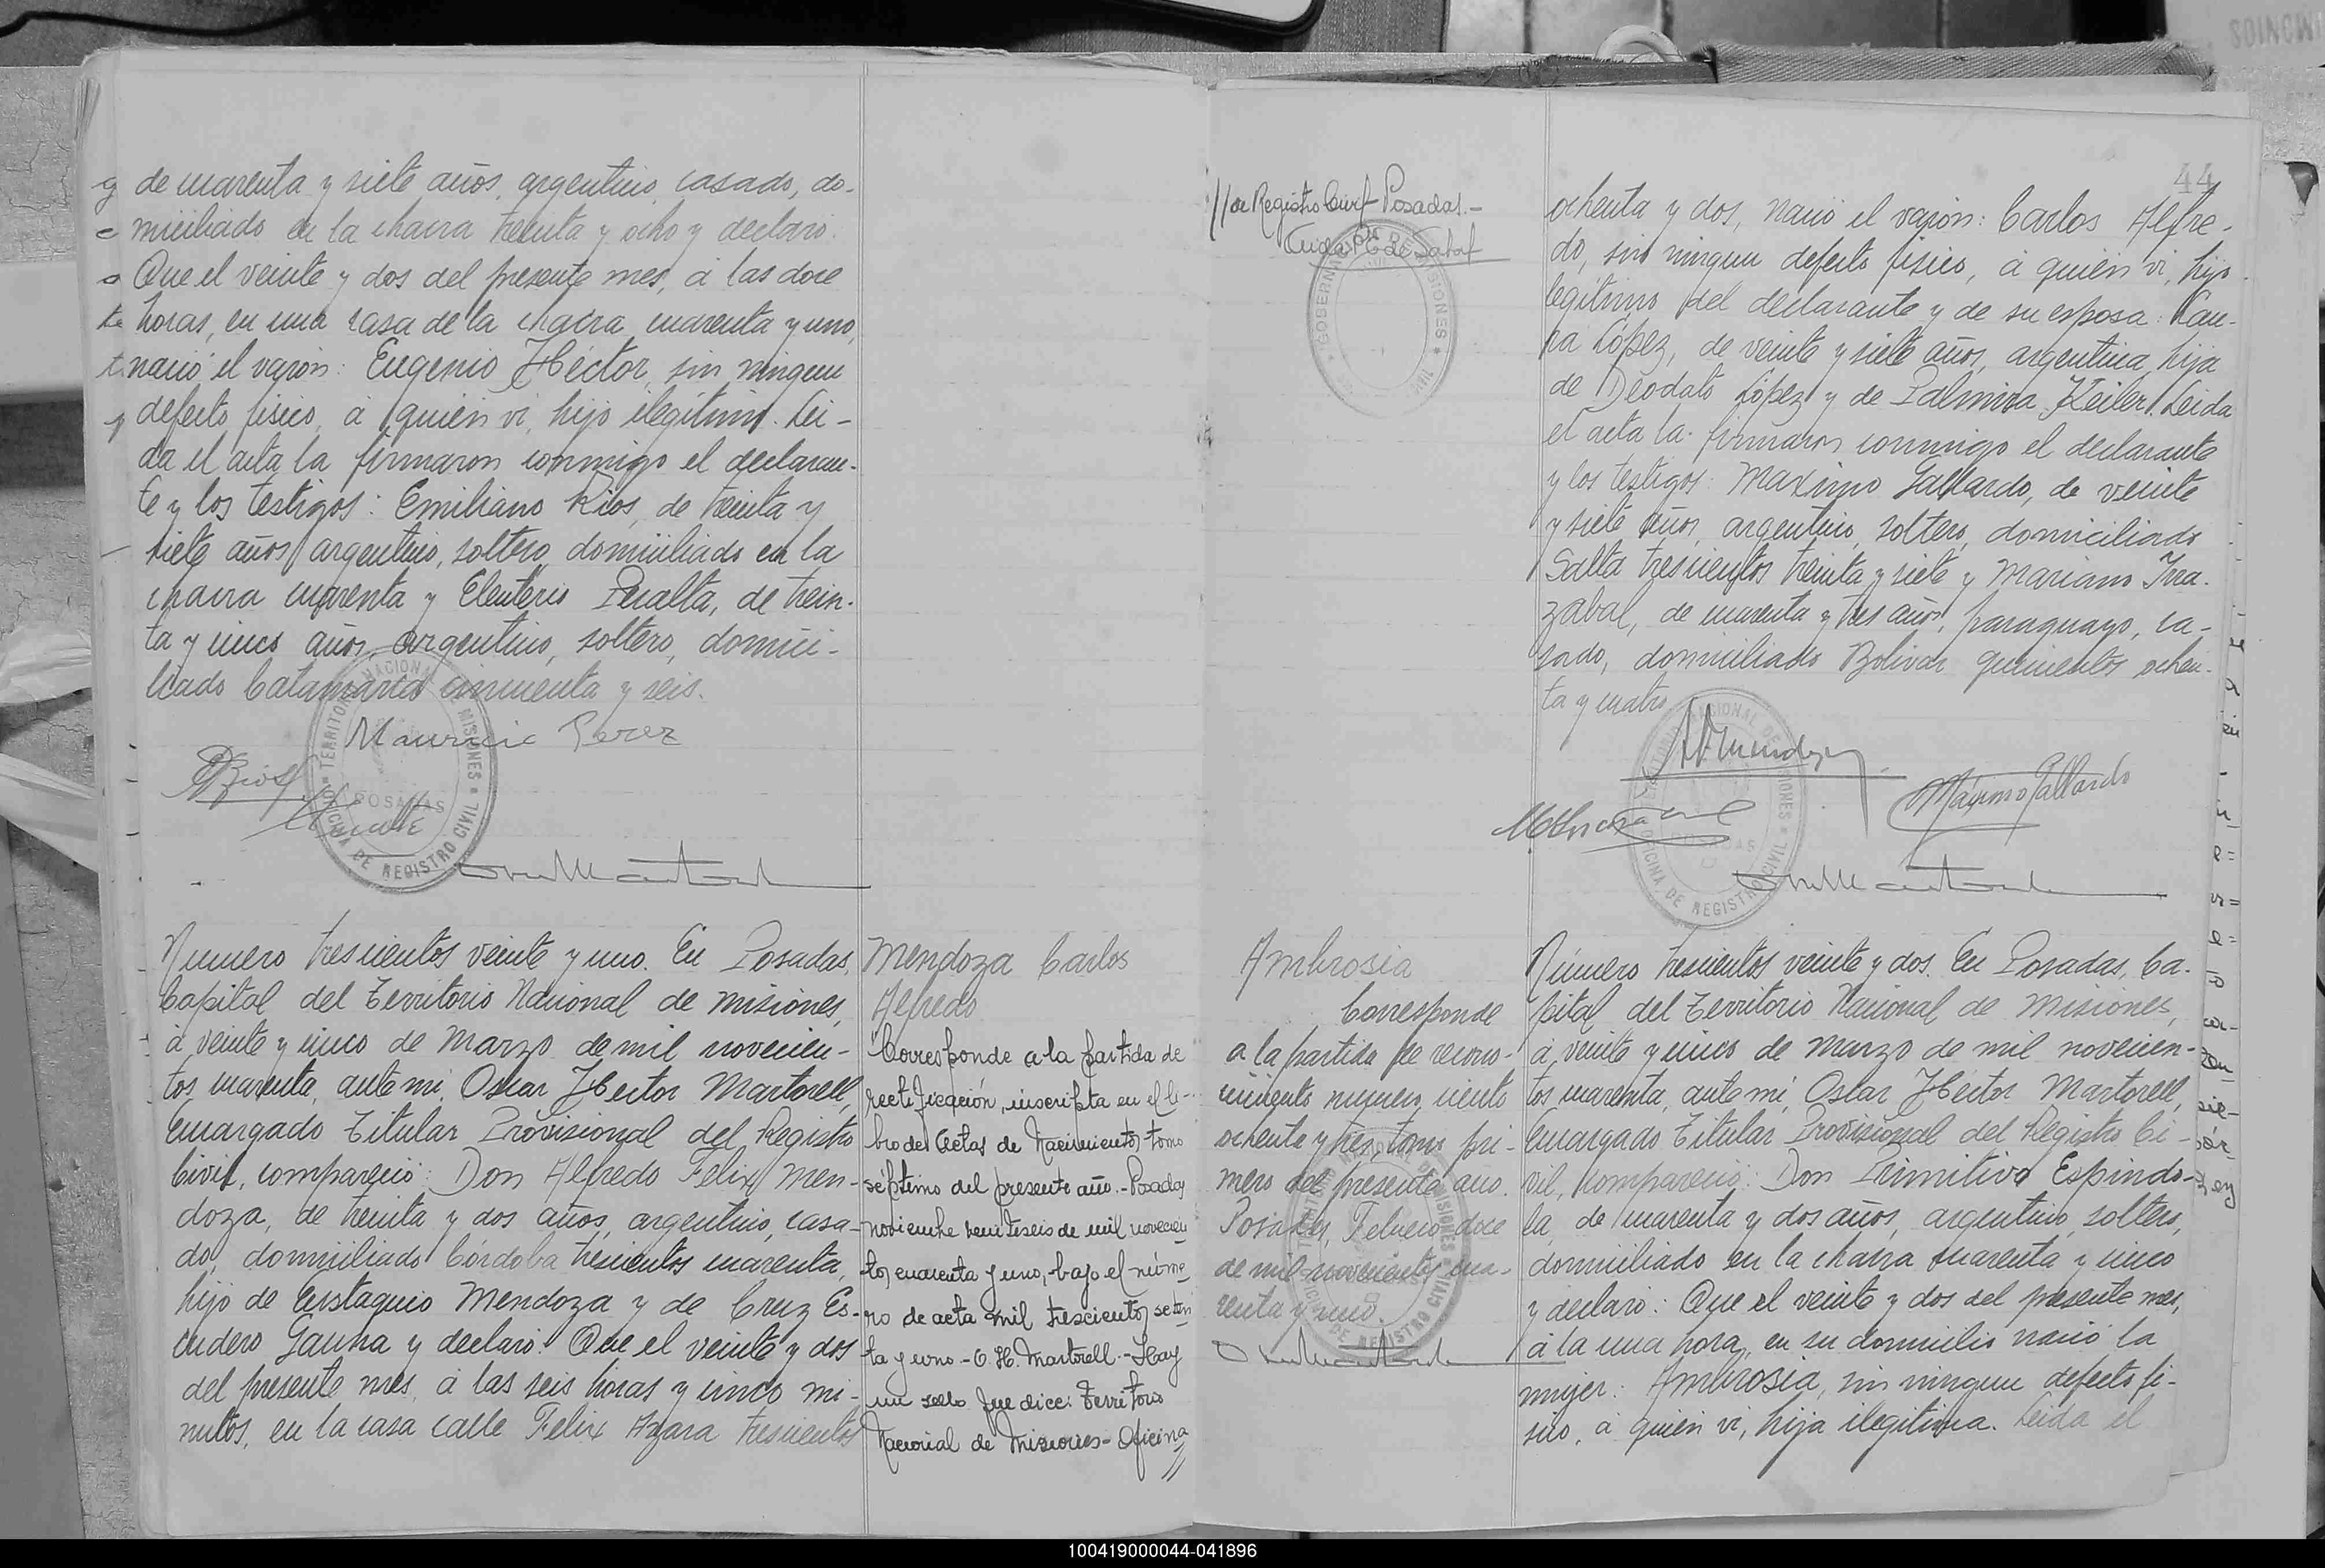 de cuarenta y siete años, argentino, casado, do-
miciliado en la chacra treinta y ocho y declaró:
Que el veinte y dos del presente mes, á las doce
horas, en una casa de la chacra cuarenta y uno,
nació el varón: Eugenio Héctor, sin ningun
defecto físico, á quién vi, hijo ilegítimo. Lei-
da el acta la firmaron conmigo el declaran-
te y los testigos: Emiliano Rios, de treinta y
siete años, argentino, soltero, domiciliado en la
chacra cuarenta y Eleuterio Peralta, de trein-
ta y cinco años, argentino, soltero, domici-
liado Catamarca cincuenta y seis.
Mauricio Perez
TERRITORIO NACIONAL DE MISIONES
POSADAS
OFICINA DE REGISTRO CIVIL
Número trescientos veinte y uno. En Posadas,
Capital del Territorio Nacional de Misiones,
á veinte y cinco de Marzo de mil novecien-
tos cuarenta, ante mí, Oscar Hector Martorell,
Encargado Titular Provisional del Registro
Civil, compareció: Don Alfredo Felix Men-
doza, de treinta y dos años, argentino, casa-
do, domiciliado Córdoba trescientos cuarenta,
hijo de Eustaquio Mendoza y de Cruz Es-
cudero Gauna y declaró: Que el veinte y dos
del presente mes, á las seis horas y cinco mi-
nutos, en la casa calle Felix Azara trescientos
Mendoza Carlos
Alfredo
Corresponde a la partida de
rectificación, inscripta en el li-
bro de Actas de Nacimientos tomo
séptimo del presente año.-Posadas
noviembre veintiseis de mil novecien
tos cuarenta y uno,-bajo el núme
ro de acta mil trescientos seten
ta y uno-O. H. Martorell.-Hay
un sello que dice: Territorio
Nacional de Misiones-Oficina
//
//de Registro Civil-Posadas.-
44
ochenta y dos, nació el varón: Carlos Alfre-
do, sin ningun defecto físico, á quién vi, hijo
legítimo del declarante y de su esposa:
López, de veinte y siete años, argentina, hija
de Deodato López y de Palmira Keiler. Leida
el acta la firmaron conmigo el declarante
y los testigos: Maximo Gallardo, de veinte
y siete años, argentino, soltero, domiciliado
Salta trescientos treinta y siete y Mariano Irra-
zabal, de cuarenta y tres años, paraguayo, ca-
sado, domiciliado Bolivar quinientos ochen-
ta y cuatro.
Máximo Gallardo
OFICINA DE REGISTRO CIVIL
Ambrosia
Corresponde
a la partida de recono-
cimiento numero ciento
ochenta y tres, tomo pri-
mero del presente año.
Posadas, Febrero doce
de mil novecientos cua-
renta y uno.
Número trescientos veinte y dos. En Posadas, Ca-
pital del Territorio Nacional de Misiones,
á veinte y cinco de Marzo de mil novecien-
tos cuarenta, ante mí, Oscar Hector Martorell,
Encargado Titular Provisional del Registro Ci-
vil, compareció: Don Primitivo Espindo-
la, de cuarenta y dos años, argentino, soltero,
domiciliado en la chacra cuarenta y cinco
y declaró: Que el veinte y dos del presente mes,
á la una hora, en su domicilio nació la
mujer: Ambrosia, sin ningun defecto fí-
sico, á quién vi, hija ilegítima. Leida el
100419000044-041896